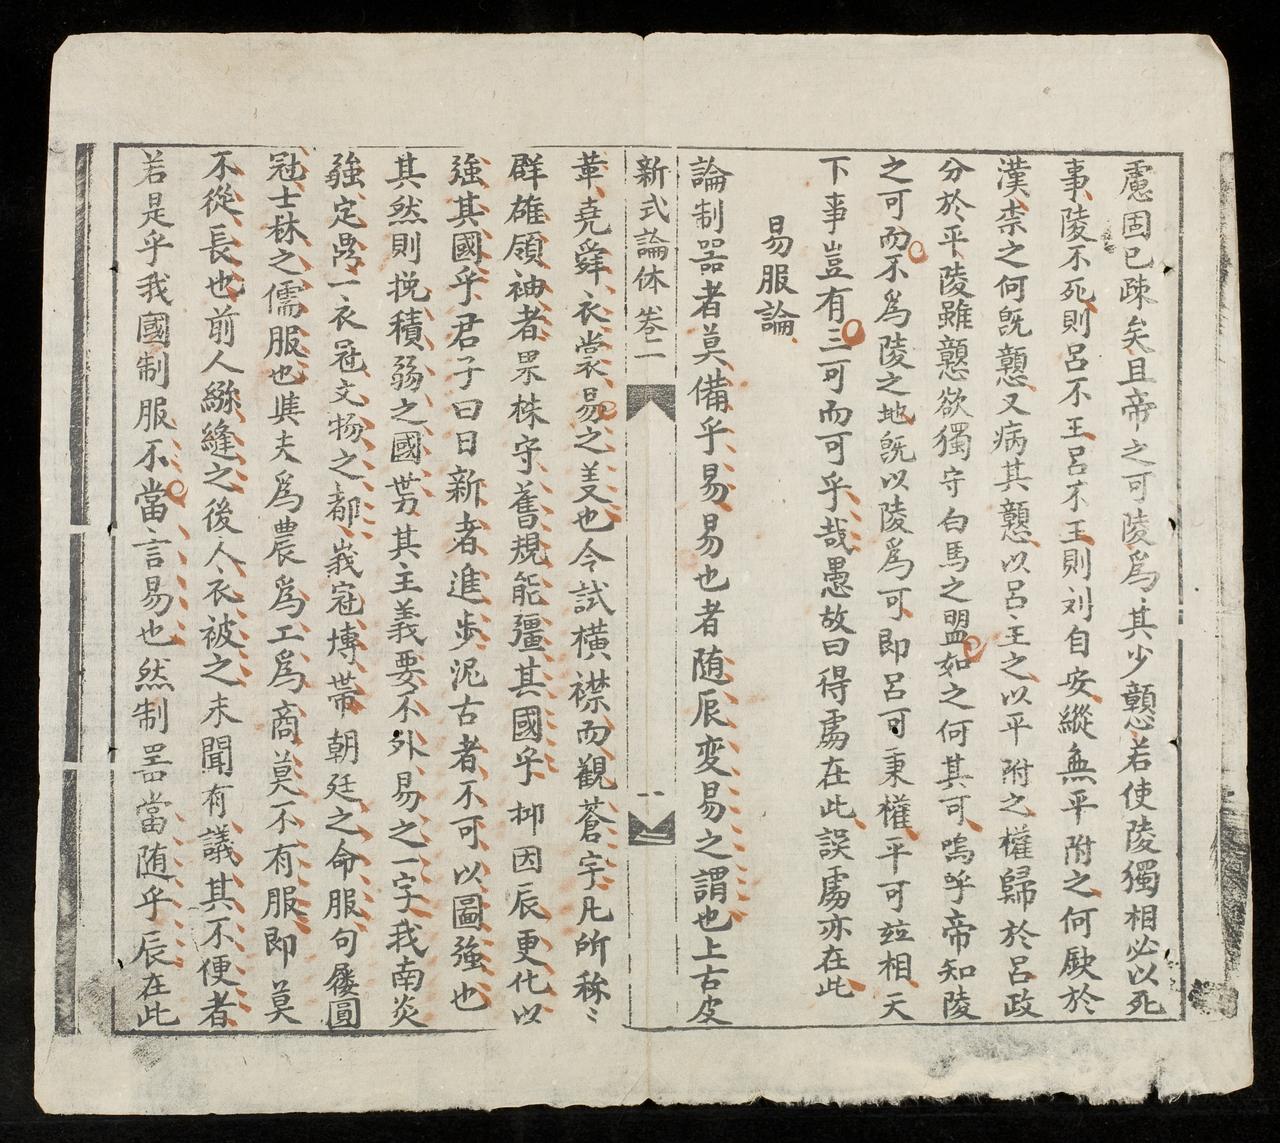 慮固已疎矣且帝之可陵爲其少戇若使陵獨相必以死
事陵不死則呂不王呂不王則刘自安縱無平附之何歐於
漢柰之何既戇又病其戇以呂王之以平附之權歸於呂政
分於平陵雖戇欲獨守白馬之盟如之何其可嗚呼帝知陵
之可而不爲陵之地既以陵爲可即呂可秉權平可竝相天
下事豈有三可而可乎哉愚故曰得處在此誤處亦在此
易服論
論制器者莫備乎易易也者随辰変易之謂也上古皮
新式論体 卷二
革堯舜衣裳易之羙也今試横襟而觀蒼宇凡所称〻
群雄領袖者果株守舊規能彊其國乎抑因辰更化以
強其國乎君子曰日新者進步泥古者不可以圖強也
其然則挽積弱之國势其主義要不外易之一字我南炎
強定畀一衣冠文物之都峩冠博帶朝廷之命服句屨圓
冠士林之儒服也與夫爲農爲工爲商莫不有服即莫
不從長也前人緜縫之後人衣被之未聞有議其不便者
若是乎我國制服不當言易也然制器當随乎辰在此